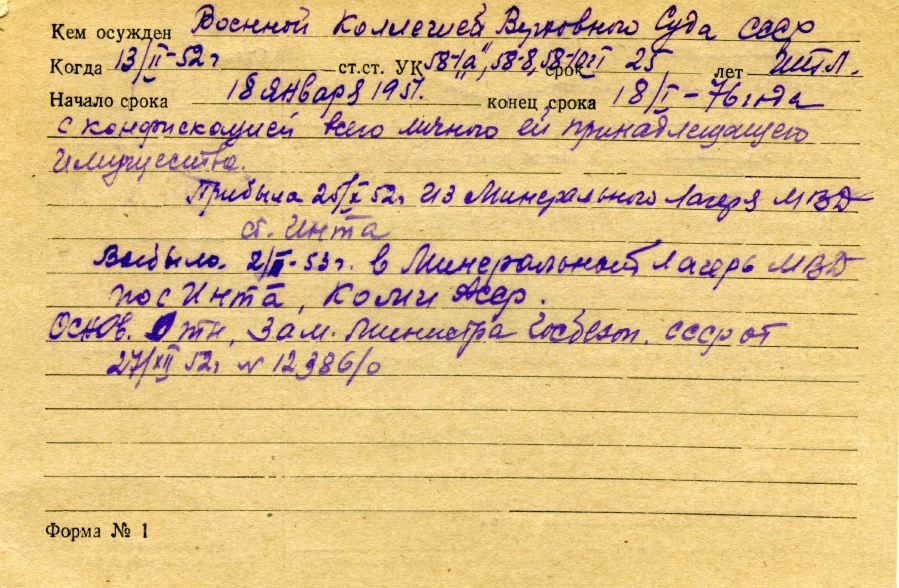 Кем осужден Военной Коллегией Верховного Суда СССР
Когда 13/II-52г ст.ст. УК 58-1"а", 58-8, 58-10 ч I срок 25 лет ИТЛ.
Начало срока 18 января 1951. конец срока 18/I-76 года
с конфискацией всего личного ей принадлежащего
имущества.
Прибыла 25/X 52г из Минерального Лагеря МВД
ст. Инта
Выбыла. 2/II-53г. в Минеральный Лагерь МВД
пос Инта, Коми Асср.
Основ. отн. Зам. Министра Госбезоп. СССР от
27/XII 52г N 12386/о
Форма № 1